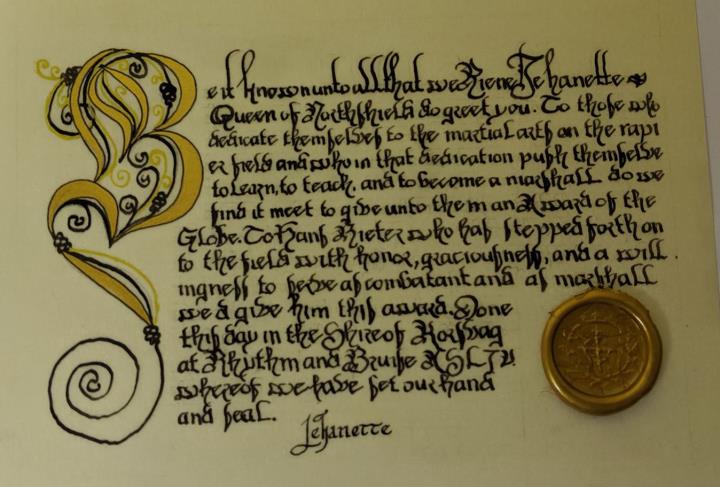 Be it known unto all that we Riene Jehanette
Queen of Northshield do greet you. To those who
dedicate themselves to the martial arts on the rapi
er field and who in that dedication push themselve
to learn, to teach, and to become a marshall do we
find it meet to give unto them an Award of the
Globe. To Hans Rieter who has stepped forth on
to the field with honor, graciousness, and a will
ingness to serve as combatant and as marshall
we d give him this award. Done
this day in the Shire of Rorsvag
at Rhythm and Bruise
whereof we have set our hand
and seal.
Jehanette